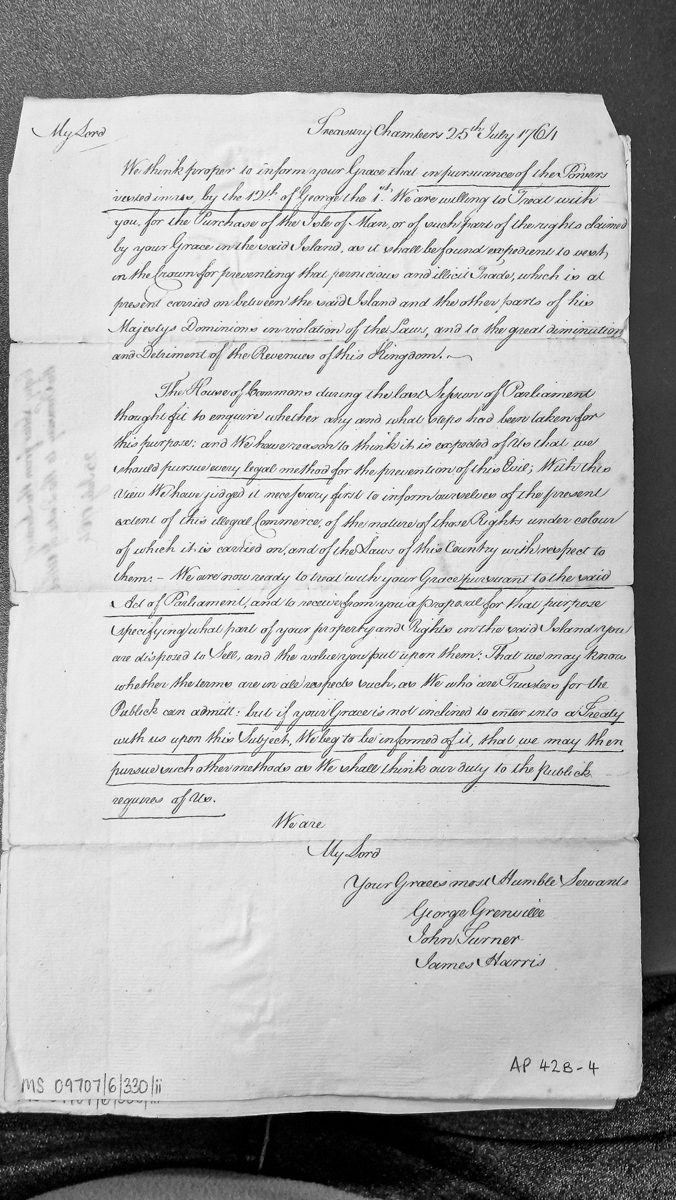 My Lord
Treasury Chambers 25th July 1764
We think proper to inform your Grace that in pursuance of the Powers
vested in us, by the 12th of George the 1st. We are willing to Treat with
you, for the Purchase of the Isle of Man, or of such part of the rights claimed
by your Grace in the said Island, as it shall be found expedient to vest,
in the Crown for preventing that pernicious and illicit Trade, which is at
present carried on between the said Island and the other parts of his
Majestys Dominions in violation of the Laws, and to the great diminution
and Detriment of the Revenues of this Kingdom.
The House of Commons during the last Session of Parliament
thought fit to enquire whether any and what steps had been taken for
this purpose; and We have reason to think it is expected of Us that we
should pursue every legal method for the prevention of this Evil; With this
View We have judged it necessary first to inform ourselves of the present
extent of this illegal Commerce, of the nature of those Rights under colour
of which it is carried on, and of the Laws of this Country with respect to
them. - We are now ready to treat with your Grace pursuant to the said
Act of Parliament, and to receive from you a proposal for that purpose
specifying what part of your property and Rights in the said Island you
are disposed to Sell, and the value you put upon them; That we may know
whether the terms are in all respects such, as We who are Trustees for the
Publick can admit: but if your Grace is not inclined to enter into a Treaty
with us upon this Subject, We beg to be informed of it, that we may then
pursue such other methods as We shall think our duty to the Publick
requires of Us.
We are
My Lord
Your Graces most Humble Servants
George Grenville
John Turner
James Harris
AP 42B-4
MS 09707/6/330/ii